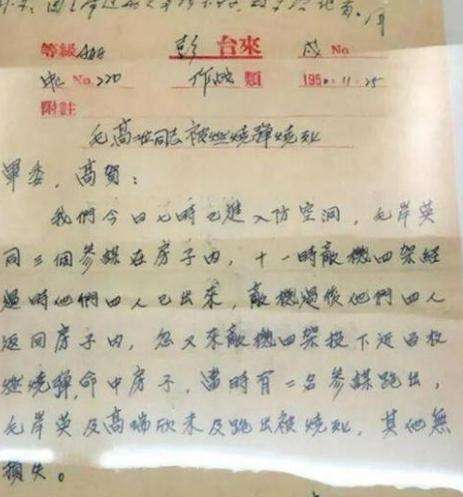 等級AAA 彭台來 戌No
No.220 作战類 1950.11.25
附註
毛高 同志被燃燒彈燒死
軍委,高賀:
我們今日七時已進入防空洞,毛岸英
同三個參謀在房子内,十一時敵機四架經
過時他們四人已出來,敵機過後他們四人
返回房子内,忽又來敵機四架投下近百枚
燃燒彈,命中房子,當時有二名參謀跑出,
毛岸英及高瑞欣未及跑出被燒死,其他無
損失。